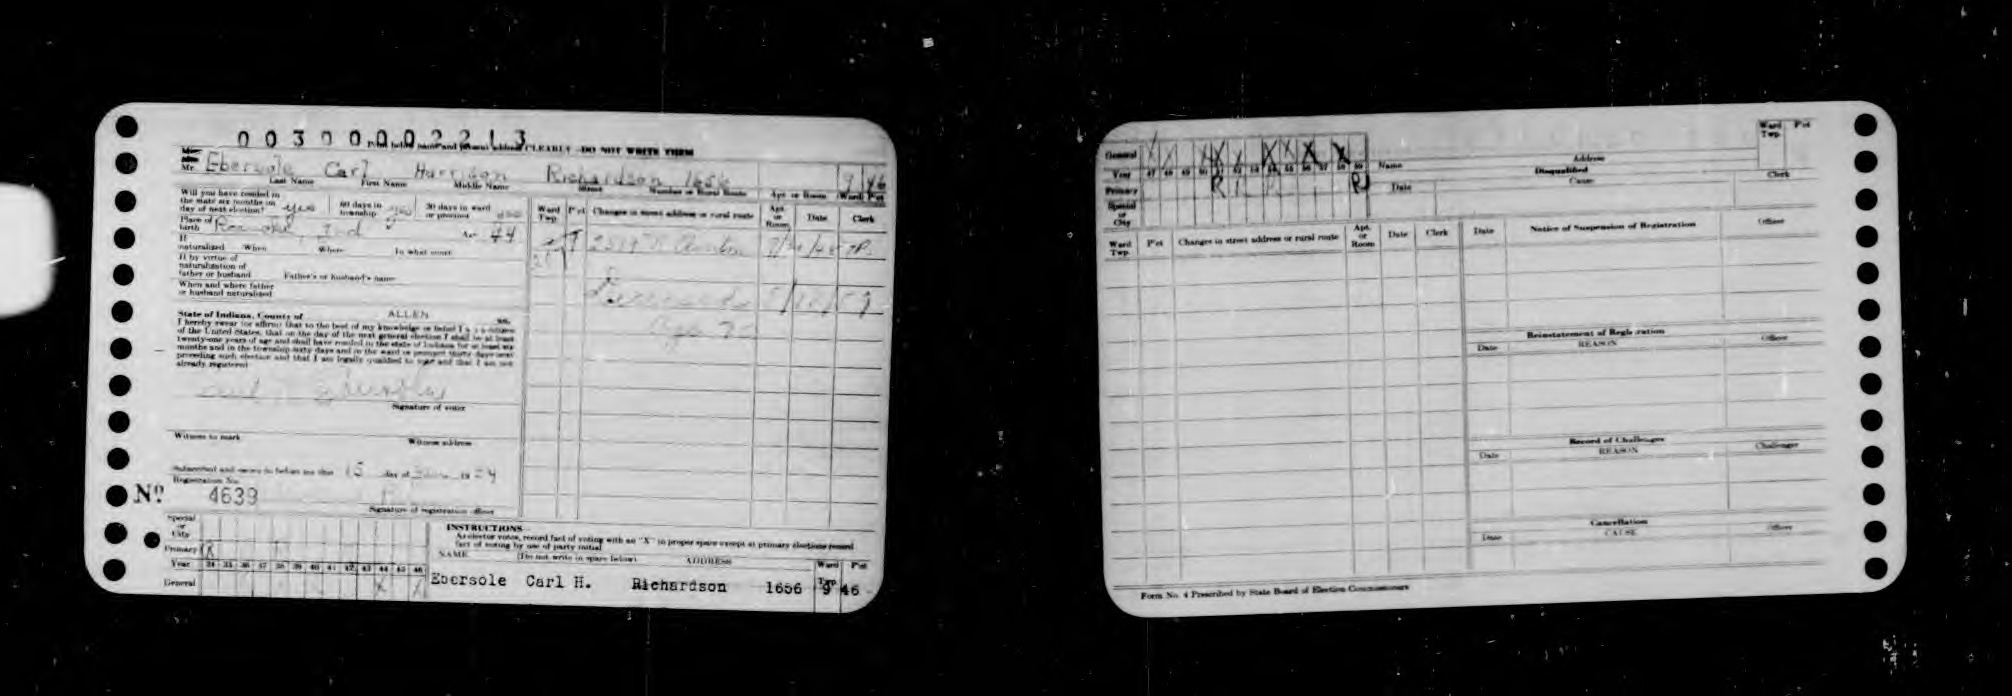 CLEARLY DO NOT WRITE THEM
Mr. Ebersole Carl Harrison Richardson 1656 9 46
Last Name First Name Middle Name Street Number or Rural Route Apt. or Room Ward Pct
Will you have resided in
the state six months on
day of next election? yes 60 days in township yes 30 days in ward or precinct yes
Place of birth Roanoke, Ind Age 44
If naturalized When Where In what court
If by virtue of
naturalization of
father or husband Father's or husband's name
When and where father
or husband naturalized
State of Indiana, County of ALLEN ss.
I hereby swear (or affirm) that to the best of my knowledge or belief I am a citizen
of the United States, that on the day of the next general election I shall be at least
twenty-one years of age and shall have resided in the state of Indiana for at least six
months and in the township sixty days and in the ward or precinct thirty days next
preceding such election and that I am legally qualified to vote and that I am not
already registered
Signature of voter
Witness to mark Witness address
Subscribed and sworn to before me this 15 day of
Registration No.
No. 4639
Signature of registration officer
Ward Twp. Pct Changes in street address or rural route Apt. or Room Date Clerk
Age 75
Special
or
City
Primary X
Year 34 35 36 37 38 39 40 41 42 43 44 45 46
General X X
INSTRUCTIONS
As elector votes, record fact of voting with an "X" in proper space except at primary elections record
fact of voting by use of party initial
NAME (Do not write in space below) ADDRESS Ward Twp. Pct
Ebersole Carl H. Richardson 1656 9 46
General X X X X X X X X
Year 47 48 49 50 51 52 53 54 55 56 57 58 59
Primary R R
Special
or
City
Name Address Ward Twp. Pct
Disqualified
Date Cause Clerk
Ward Twp. Pct Changes in street address or rural route Apt. or Room Date Clerk
Date Notice of Suspension of Registration Officer
Reinstatement of Registration
Date REASON Officer
Record of Challenges
Date REASON Challenger
Cancellation
Date CAUSE Officer
Form No. 4 Prescribed by State Board of Election Commissioners